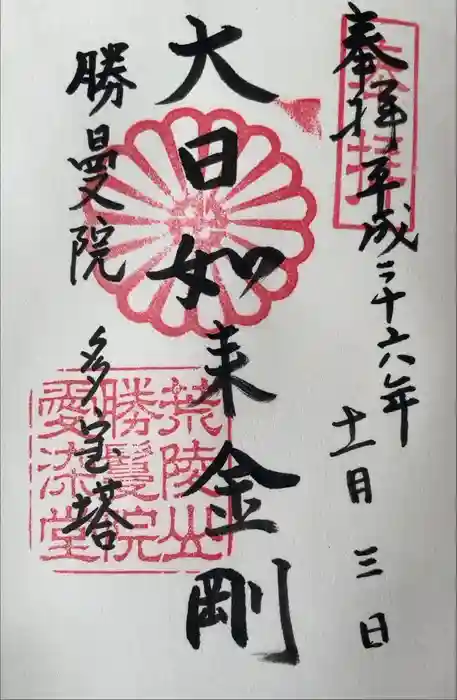 奉拝 平成二十六年
十一月三日
大日如来金剛
勝曼院 多宝塔
奉拝
荒陵山
勝鬘院
愛染堂